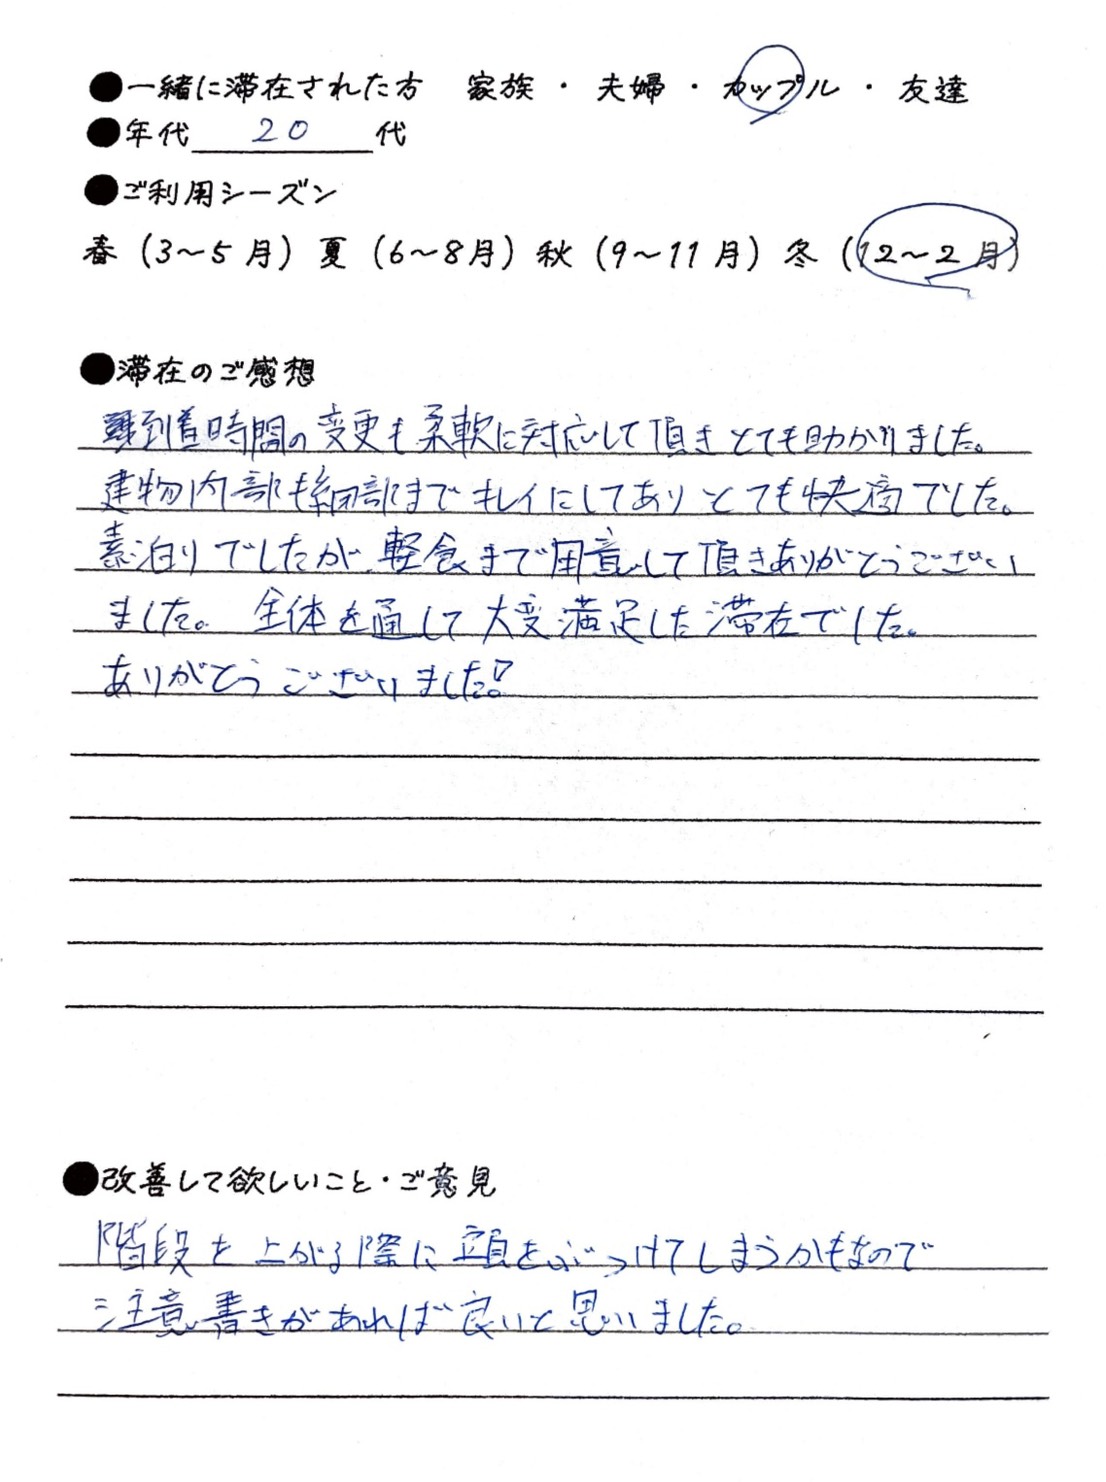 ●一緒に滞在された方 家族 ・ 夫婦 ・ カップル ・ 友達
●年代 20 代
●ご利用シーズン
春 (3〜5 月) 夏 (6〜8月) 秋 (9〜11 月) 冬 (12〜2 月)
●滞在のご感想
到着時間の変更も柔軟に対応して頂きとても助かりました。
建物内部も細部までキレイにしてありとても快適でした。
素泊りでしたが軽食まで用意して頂きありがとうござい
ました。 全体を通して大変満足した滞在でした。
ありがとうございました!
●改善して欲しいこと・ご意見
階段を上がる際に頭をぶつけてしまうかもなので
注意書きがあれば良いと思いました。